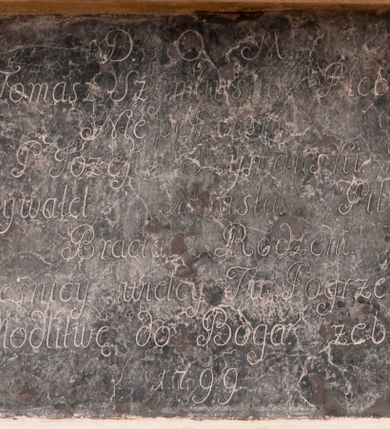 D O M
Tomasz Szymański Pleb
Niepo
P Józef Szymański
ywatel Miasta Pil
Bracia Rodzeni
esnicy wielcy Tu Pogrze
Modlitwę do Boga żeb
1799